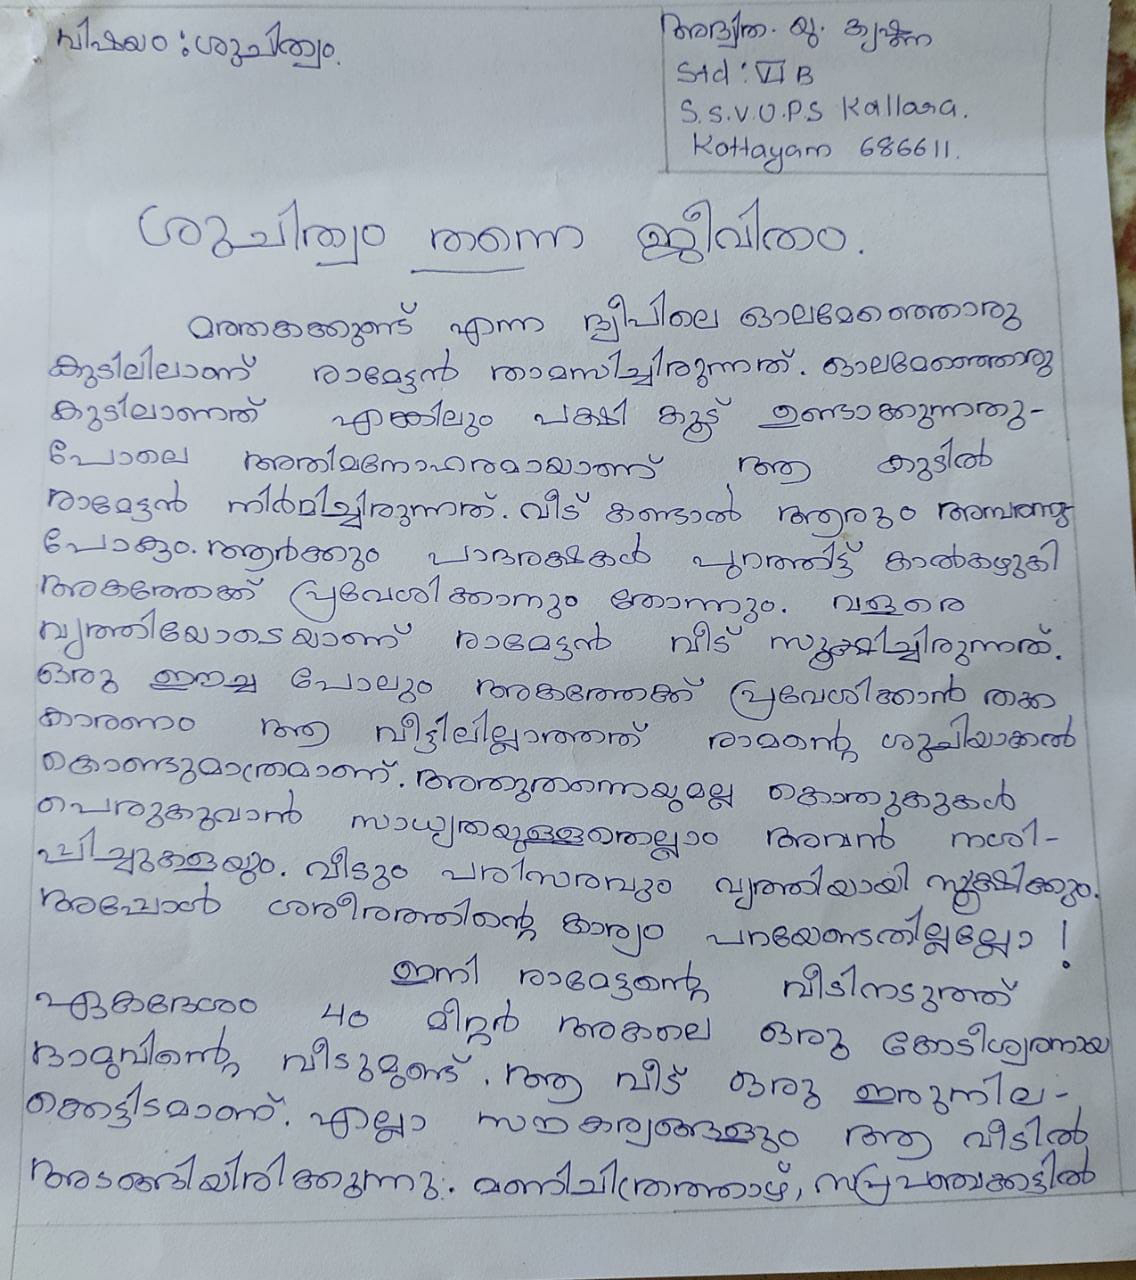 വിഷയം : ശുചിത്വം.
അദ്വൈത. യു. കൃഷ്ണ
Std : VI B
S.S.V.U.P.S Kallara.
Kottayam 686611.
ശുചിത്വം തന്നെ ജീവിതം.
മത്തകക്കുണ്ട് എന്ന ദ്വീപിലെ ഓലമേഞ്ഞൊരു
കുടിലിലാണ് രാമേട്ടൻ താമസിച്ചിരുന്നത്. ഓലമേഞ്ഞൊരു
കുടിലാണത് എങ്കിലും പക്ഷി കൂട് ഉണ്ടാക്കുന്നതു-
പോലെ അതിമനോഹരമായാണ് ആ കുടിൽ
രാമേട്ടൻ നിർമിച്ചിരുന്നത്. വീട് കണ്ടാൽ ആരും അമ്പരന്നു
പോകും. ആർക്കും പാദരക്ഷകൾ പുറത്തിട്ട് കാൽകഴുകി
അകത്തേക്ക് പ്രവേശിക്കാനും തോന്നും. വളരെ
വൃത്തിയോടെയാണ് രാമേട്ടൻ വീട് സൂക്ഷിച്ചിരുന്നത്.
ഒരു ഈച്ച പോലും അകത്തേക്ക് പ്രവേശിക്കാൻ തക്ക
കാരണം ആ വീട്ടിലില്ലാത്തത് രാമന്റെ ശുചിയാക്കൽ
കൊണ്ടുമാത്രമാണ്. അതുതന്നെയുമല്ല കൊതുകുകൾ
പെരുകുവാൻ സാധ്യതയുള്ളതെല്ലാം അവൻ നശി-
പ്പിച്ചുകളയും. വീടും പരിസരവും വൃത്തിയായി സൂക്ഷിക്കും.
അപ്പോൾ ശരീരത്തിന്റെ കാര്യം പറയേണ്ടതില്ലല്ലോ !
ഇനി രാമേട്ടന്റെ വീടിനടുത്ത്
ഏകദേശം 40 മീറ്റർ അകലെ ഒരു കോടീശ്വരനായ
ദാമുവിന്റെ വീടുമുണ്ട്. ആ വീട് ഒരു ഇരുനില-
ക്കെട്ടിടമാണ്. എല്ലാ സൗകര്യങ്ങളും ആ വീടിൽ
അടങ്ങിയിരിക്കുന്നു. മണിചിത്രത്താഴ്, സപ്രപഞ്ചക്കട്ടിൽ